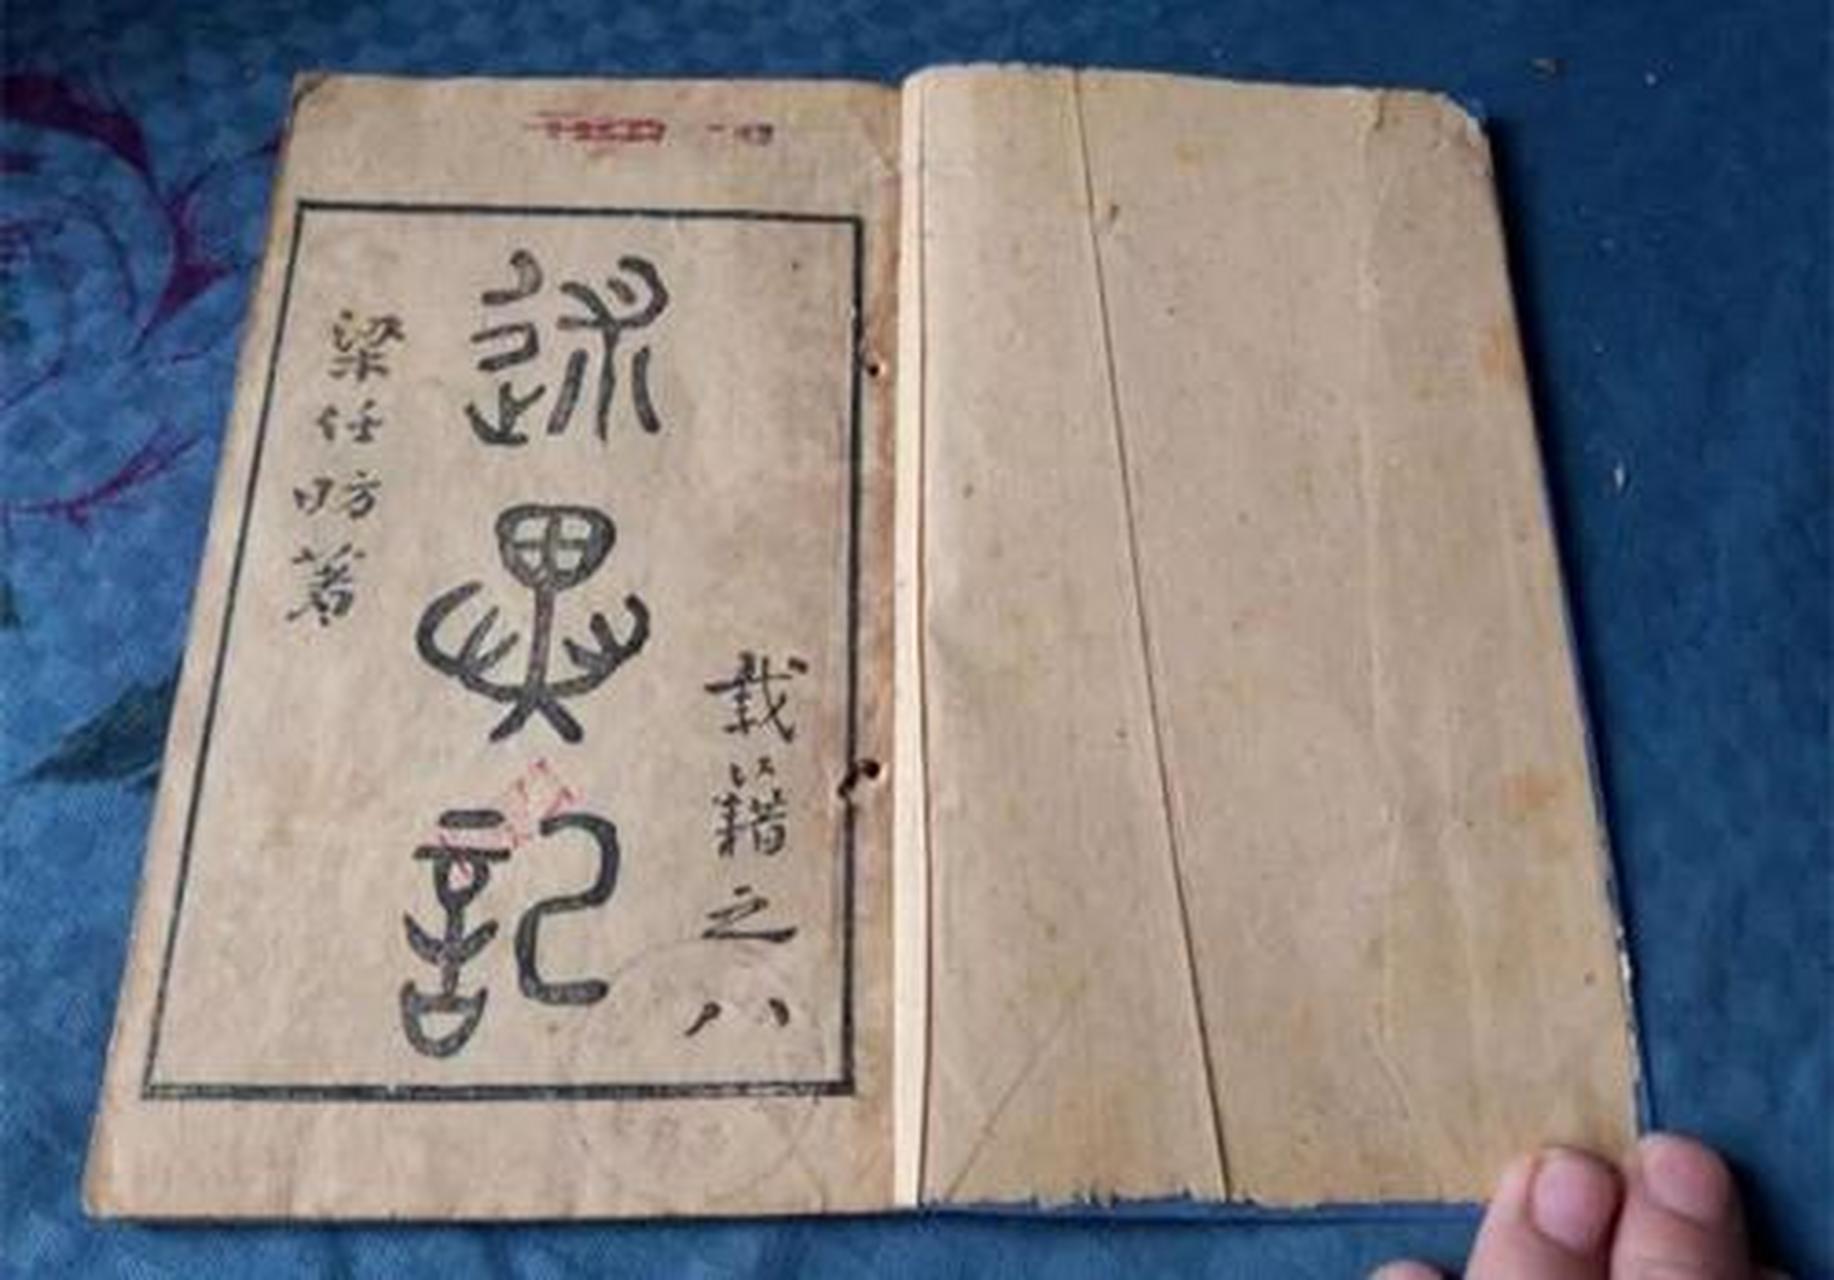 載籍之八
述異記
梁任昉著